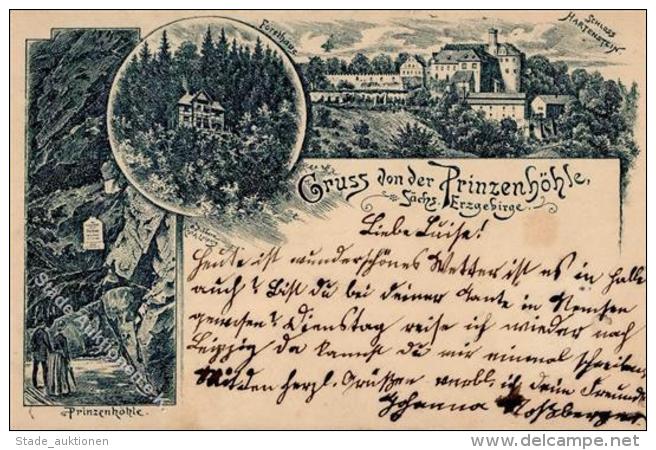 Forsthaus
Schloss
Hartenstein
Gruss von der Prinzenhöhle,
Sächs. Erzgebirge.
Liebe Luise!
Heute ist wunderschönes Wetter ist es in Halle
auch? Bist du bei deiner Tante in
gewesen? Dienstag reise ich wieder nach
Leipzig da kannst du mir einmal schreiben
Mit den herzl. Grüßen verbl. ich dein Freundin
Johanna Roßberger
Prinzenhöhle.
Stade_auktionen
www.delcampe.net